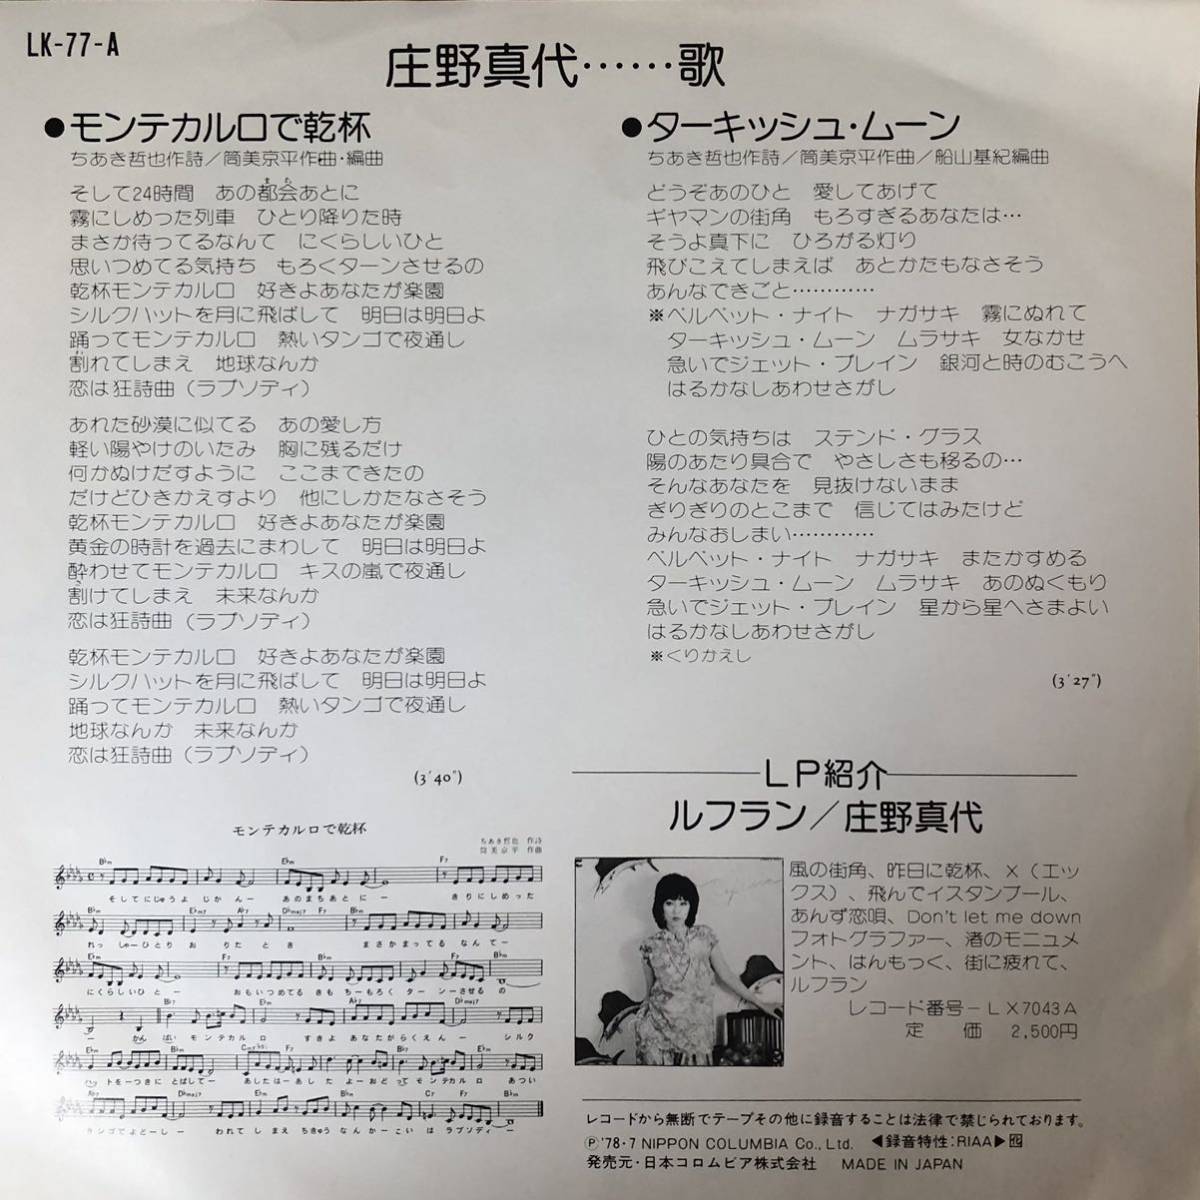 LK-77-A
庄野真代……歌
●モンテカルロで乾杯
ちあき哲也作詩／筒美京平作曲・編曲
そして24時間　あの都会あとに
霧にしめった列車　ひとり降りた時
まさか待ってるなんて　にくらしいひと
思いつめてる気持ち　もろくターンさせるの
乾杯モンテカルロ　好きよあなたが楽園
シルクハットを月に飛ばして　明日は明日よ
踊ってモンテカルロ　熱いタンゴで夜通し
割れてしまえ　地球なんか
恋は狂詩曲（ラプソディ）
あれた砂漠に似てる　あの愛し方
軽い陽やけのいたみ　胸に残るだけ
何かぬけだすように　ここまできたの
だけどひきかえすより　他にしかたなさそう
乾杯モンテカルロ　好きよあなたが楽園
黄金の時計を過去にまわして　明日は明日よ
酔わせてモンテカルロ　キスの嵐で夜通し
割けてしまえ　未来なんか
恋は狂詩曲（ラプソディ）
乾杯モンテカルロ　好きよあなたが楽園
シルクハットを月に飛ばして　明日は明日よ
踊ってモンテカルロ　熱いタンゴで夜通し
地球なんか　未来なんか
恋は狂詩曲（ラプソディ）
(3′40″)
●ターキッシュ・ムーン
ちあき哲也作詩／筒美京平作曲／船山基紀編曲
どうぞあのひと　愛してあげて
ギヤマンの街角　もろすぎるあなたは…
そうよ真下に　ひろがる灯り
飛びこえてしまえば　あとかたもなさそう
あんなできごと…………
※ベルベット・ナイト　ナガサキ　霧にぬれて
ターキッシュ・ムーン　ムラサキ　女なかせ
急いでジェット・プレイン　銀河と時のむこうへ
はるかなしあわせさがし
ひとの気持ちは　ステンド・グラス
陽のあたり具合で　やさしさも移るの…
そんなあなたを　見抜けないまま
ぎりぎりのとこまで　信じてはみたけど
みんなおしまい…………
ベルベット・ナイト　ナガサキ　またかすめる
ターキッシュ・ムーン　ムラサキ　あのぬくもり
急いでジェット・プレイン　星から星へさまよい
はるかなしあわせさがし
※くりかえし
(3′27″)
モンテカルロで乾杯
ちあき哲也　作詩
筒美京平　作曲
そしてにじゅうよ じかん ー　あのまちあとに ー　きりにしめった
れっ しゃーひとり おりた とき　まさかまってる なんて ー
にくらしいひと ー　おもいつめてる きも ちーもろく ターン ーさせる の
ー　かんぱい モンテカルロ　すきよ あなたがらくえん ー　シルク
ハットを ーつきに とばして ー　あしたは ーあした よーおどって モンテカルロ　あつい
タンゴでよどーし ー　われて し まえ ちきゅう なんか ーこい は ラプソディ ー
LP紹介
ルフラン／庄野真代
風の街角、昨日に乾杯、X（エッ
クス）、飛んでイスタンブール、
あんず恋唄、Don't let me down
フォトグラファー、渚のモニュメ
ント、はんもっく、街に疲れて、
ルフラン
レコード番号－LX7043A
定　価　2,500円
レコードから無断でテープその他に録音することは法律で禁じられております。
Ⓟ'78・7 NIPPON COLUMBIA Co., Ltd.　◀録音特性：RIAA▶
発売元・日本コロムビア株式会社　MADE IN JAPAN